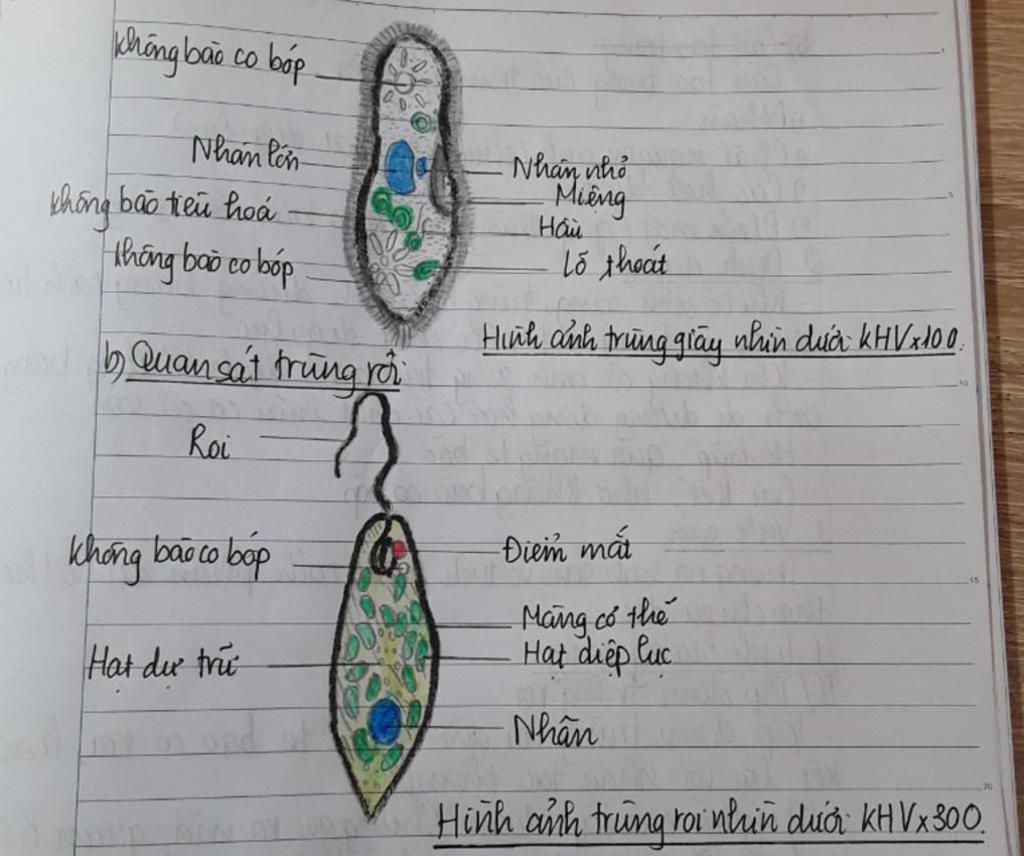 không bào co bóp
Nhân lớn
Nhân nhỏ
Miệng
không bào tiêu hoá
Hầu
không bào co bóp
Lỗ thoát
Hình ảnh trùng giày nhìn dưới KHVx100.
b) Quan sát trùng roi
Roi
không bào co bóp
Điểm mắt
Màng cơ thể
Hạt diệp lục
Hạt dự trữ
Nhân
Hình ảnh trùng roi nhìn dưới KHVx300.